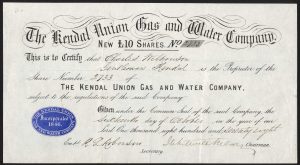 The Kendal Union Gas and Water Company.
NEW £10 SHARES. No
This is to Certify that Charles Wilkinson
Gentleman Kendal is the Proprietor of the
Share Number 2733 of
THE KENDAL UNION GAS AND WATER COMPANY,
subject to the regulations of the said Company.
Given under the Common Seal of the said Company, the
sixteenth day of October in the year of our
Lord One thousand eight hundred and Seventy Eight
Incorporated
1846.
CHAIRMAN.
Secretary.